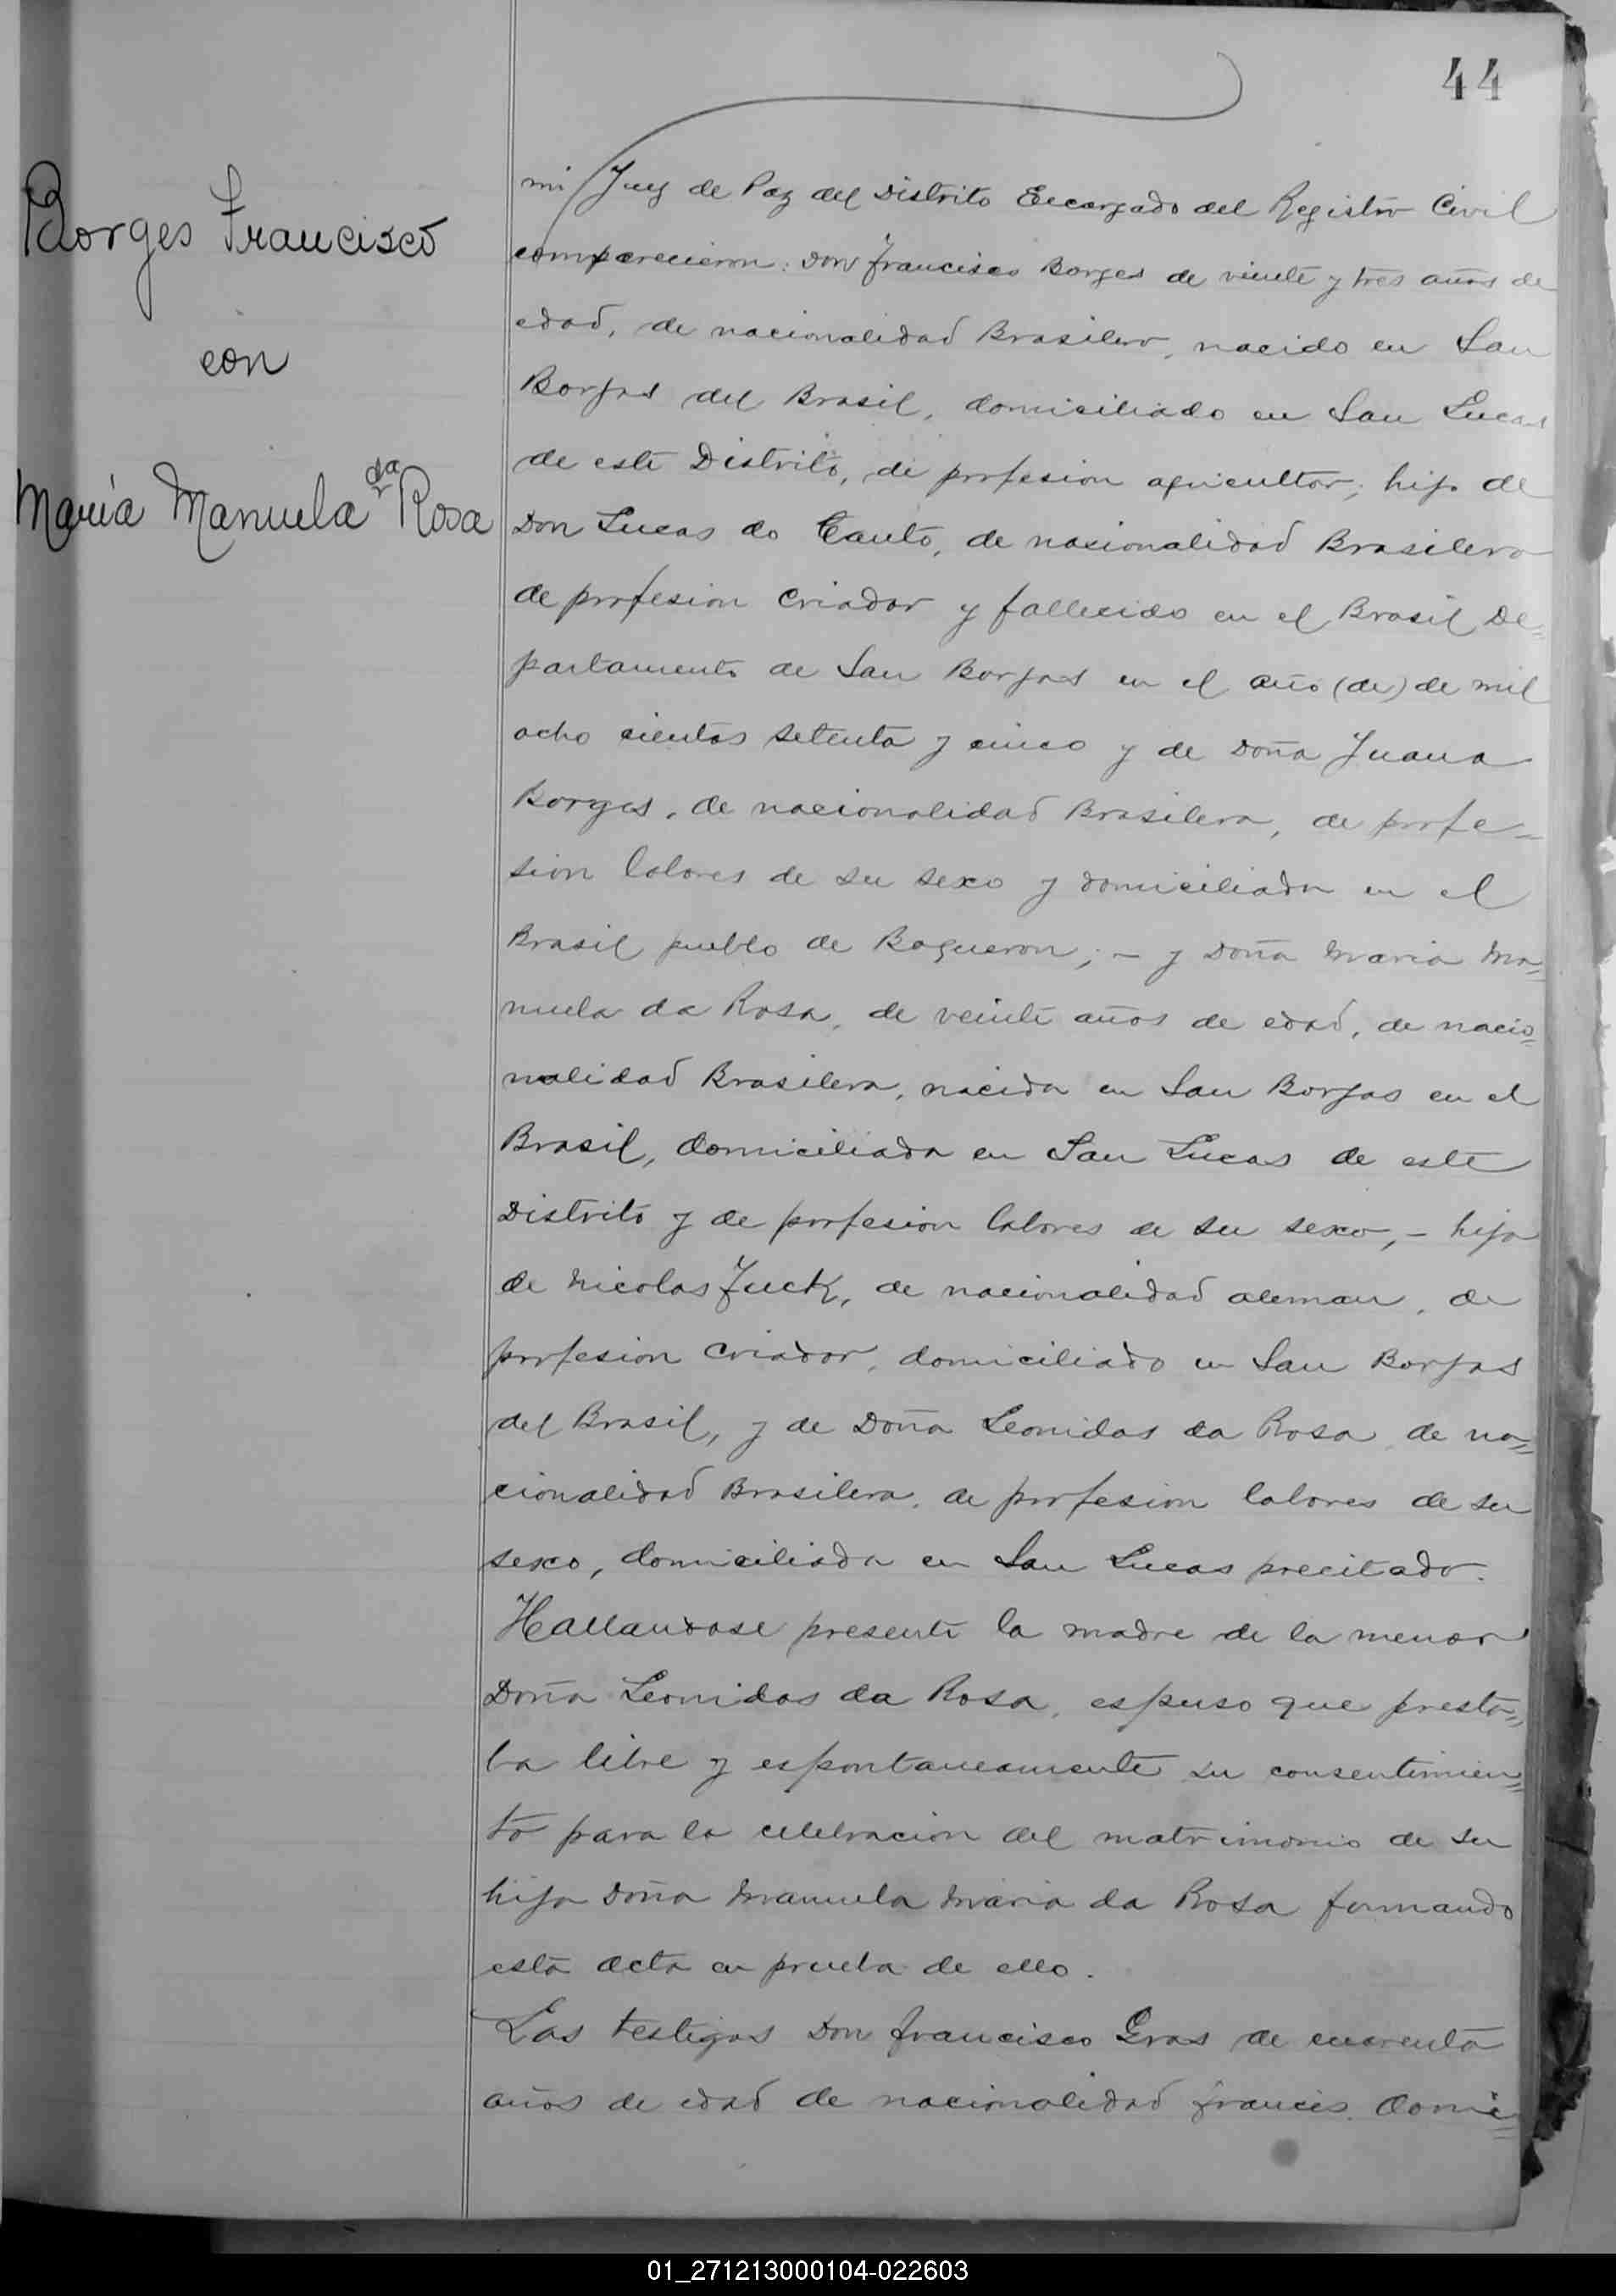 44
Borges Francisco
con
María Manuela da Rosa
mi Juez de Paz del Distrito Encargado del Registro Civil
comparecieron: Don Francisco Borges de viente y tres años de
edad, de nacionalidad Brasilero, nacido en San
Borjas del Brasil, domiciliado en San Lucas
de este Distrito, de profesion agricultor; hijo de
Don Lucas do Canto, de nasionalidad Brasilero
de profesion criador y fallecido en el Brasil De=
partamento de San Borjas en el año (de) de mil
ocho cientos setenta y cinco y de Doña Juana
Borges, de nacionalidad Brasilera, de profe=
sion labores de su sexo y domiciliada en el
Brasil pueblo de Boqueron; - y Doña Maria Ma=
nuela da Rosa, de veinte años de edad, de nacio=
nalidad Brasilera, nacida en San Borjas en el
Brasil, domiciliada en San Lucas de este
Distrito y de profesion labores de su sexo, - hija
de Nicolas Juck, de nacionalidad aleman, de
profesion criador, domiciliado en San Borjas
del Brasil, y de Doña Leonidas da Rosa de na=
cionalidad Brasilera, de profesion labores de su
sexo, domiciliada en San Lucas precitado.
Hallandose presente la madre de la menor
Doña Leonidas da Rosa, espuso que presta=
ba libre y espontaneamente su consentimien=
to para la celebracion del matrimonio de su
hija Doña Manuela Maria da Rosa firmando
esta acta en prueba de ello.
Los testigos Don Francisco Gras de cuarenta
años de edad de nacionalidad frances domi=
01_271213000104-022603